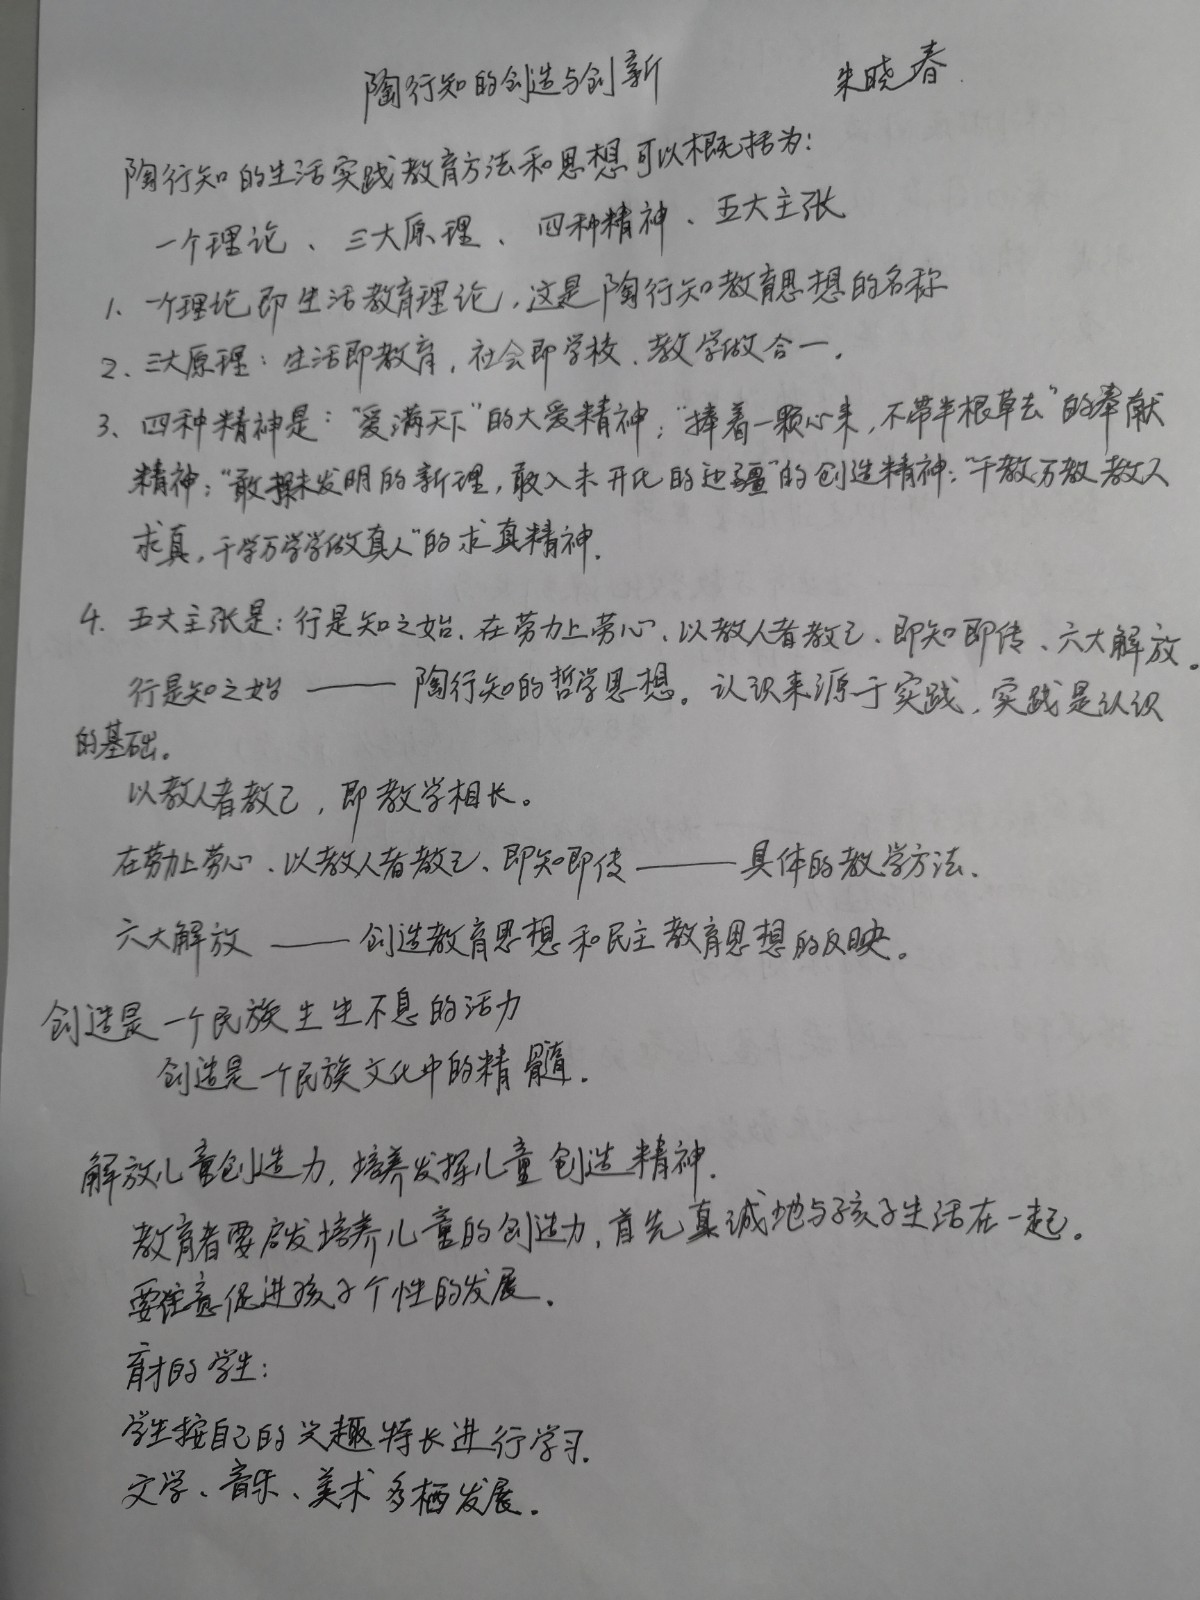 陶行知的创造与创新 朱晓春
陶行知的生活实践教育方法和思想可以概括为:
一个理论、三大原理、四种精神、五大主张
1、一个理论即生活教育理论,这是陶行知教育思想的名称
2、三大原理:生活即教育,社会即学校、教学做合一.
3、四种精神是:“爱满天下”的大爱精神;“捧着一颗心来,不带半根草去”的奉献
精神;“敢探未发明的新理,敢入未开化的边疆”的创造精神;“千教万教教人
求真,千学万学学做真人”的求真精神.
4. 五大主张是:行是知之始、在劳力上劳心、以教人者教己、即知即传、六大解放。
行是知之始——陶行知的哲学思想。认识来源于实践,实践是认识
的基础。
以教人者教己,即教学相长。
在劳力上劳心、以教人者教己、即知即传——具体的教学方法.
六大解放——创造教育思想和民主教育思想的反映。
创造是一个民族生生不息的活力
创造是一个民族文化中的精髓.
解放儿童创造力,培养发挥儿童创造精神.
教育者要启发培养儿童的创造力,首先真诚地与孩子生活在一起。
要注意促进孩子个性的发展.
育才的学生:
学生按自己的兴趣特长进行学习.
文学、音乐、美术多栖发展。